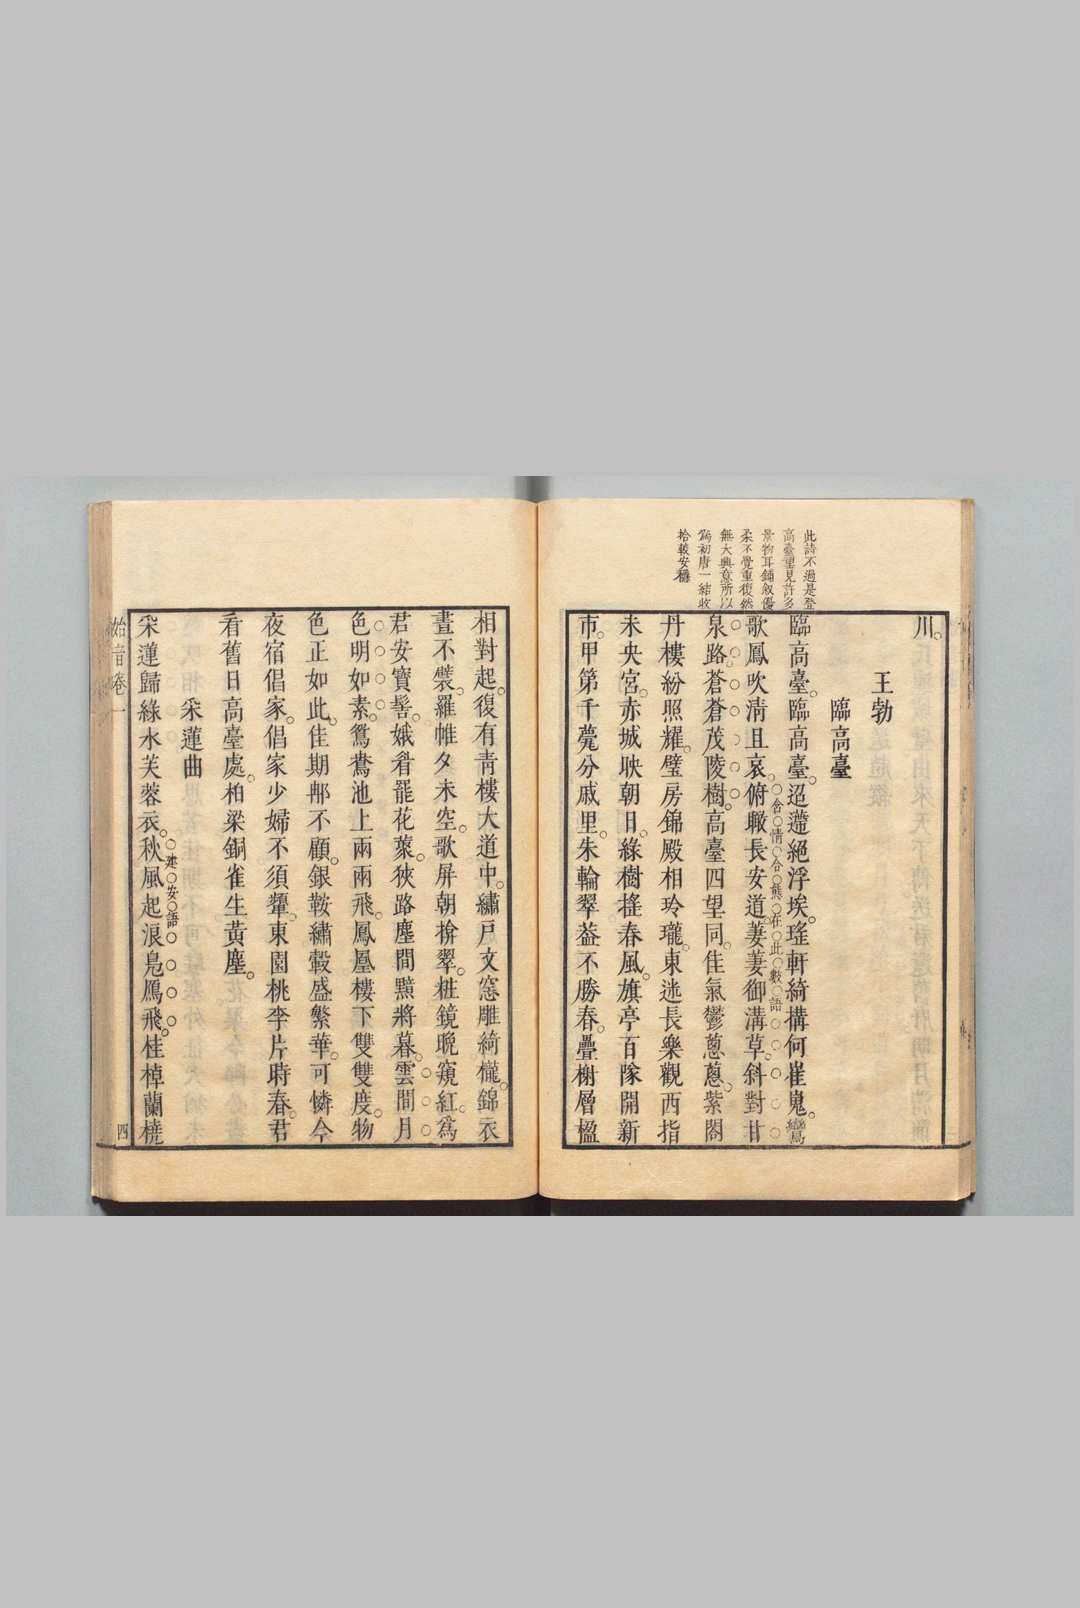 此詩不過是登
高臺望見許多
景物耳鋪敘優
柔不覺重複然
無大興意所以
為初唐一結收
拾較安穩
川
王勃
臨高臺
臨高臺臨高臺迢遰絕浮埃瑤軒綺構何崔嵬鸞
歌鳳吹清且哀俯瞰長安道萋萋御溝草斜對甘
含情含態在此數語
泉路蒼蒼茂陵樹高臺四望同佳氣鬱蔥蔥紫閣
丹樓紛照耀璧房錦殿相玲瓏東迷長樂觀西指
未央宮赤城映朝日綠樹搖春風旗亭百隊開新
市甲第千甍分戚里朱輪翠葢不勝春疊榭層楹
相對起復有青樓大道中繡戶文窓雕綺櫳錦衣
晝不襞羅帷夕未空歌屏朝掩翠粧鏡晚窺紅為
君安寶髻娥眉罷花藂狹路塵間黯將暮雲間月
色明如素鴛鴦池上兩兩飛鳳凰樓下雙雙度物
色正如此佳期那不顧銀鞍繡轂盛繁華可憐今
夜宿倡家倡家少婦不須顰東園桃李片時春君
看舊日高臺處柏梁銅雀生黃塵
采蓮曲
采蓮歸綠水芙蓉衣秋風起浪鳧鴈飛桂棹蘭橈
建安語
始音卷一
四